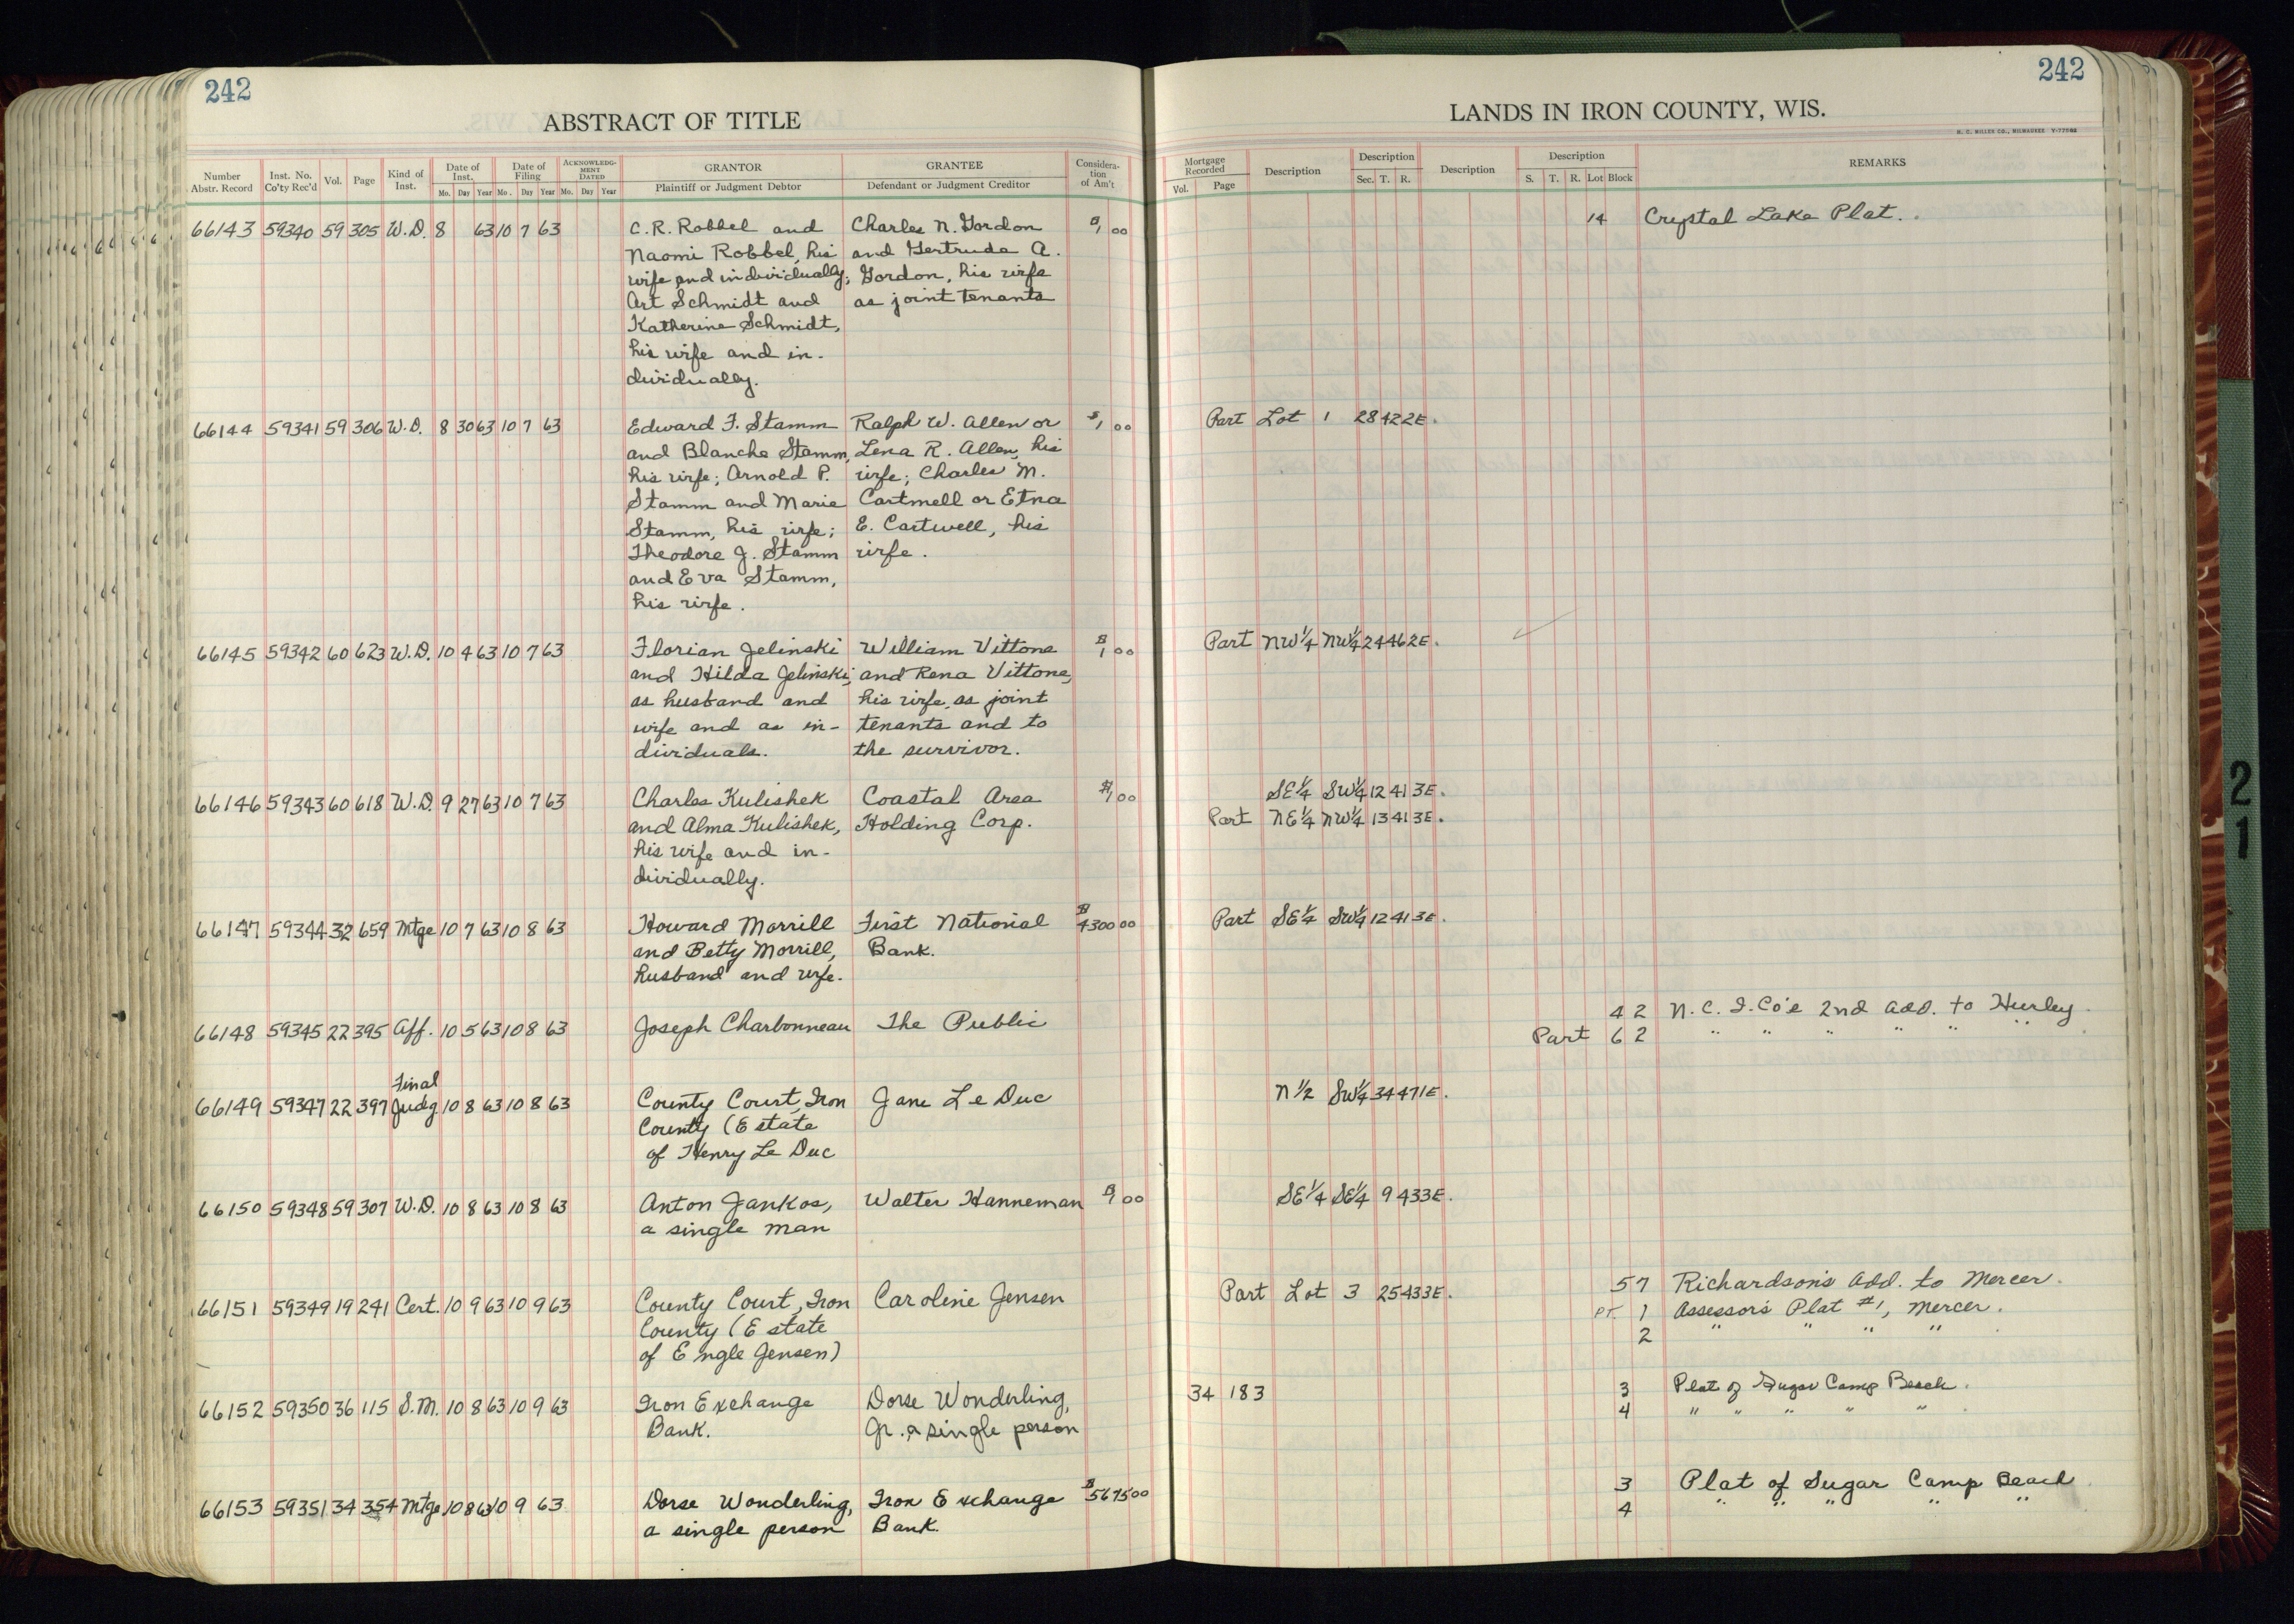 242
ABSTRACT OF TITLE
Number Abstr. Record Inst. No. Co'ty Rec'd Vol. Page Kind of Inst. Date of Inst. Mo. Day Year Date of Filing Mo. Day Year ACKNOWLEDGMENT DATED Mo. Day Year GRANTOR Plaintiff or Judgment Debtor GRANTEE Defendant or Judgment Creditor Consideration of Am't
66143 59340 59 305 W.D. 8 63 10 7 63 C.R. Robbel and Charles N. Gordon $1 00
Naomi Robbel, his and Gertrude A.
wife and individually; Gordon, his wife
Art Schmidt and as joint tenants
Katherine Schmidt,
his wife and in-
dividually.
66144 59341 59 306 W.D. 8 30 63 10 7 63 Edward F. Stamm Ralph W. Allen or $1 00
and Blanche Stamm, Lena R. Allen, his
his wife; Arnold P. wife; Charles M.
Stamm and Marie Cartmell or Etna
Stamm, his wife; E. Cartwell, his
Theodore J. Stamm wife.
and Eva Stamm,
his wife.
66145 59342 60 623 W.D. 10 4 63 10 7 63 Florian Jelinski William Vittone $1 00
and Hilda Jelinski, and Rena Vittone,
as husband and his wife, as joint
wife and as in- tenants and to
dividuals. the survivor.
66146 59343 60 618 W.D. 9 27 63 10 7 63 Charles Kulishek Coastal Area $1 00
and Alma Kulishek, Holding Corp.
his wife and in-
dividually.
66147 59344 32 659 Mtge 10 7 63 10 8 63 Howard Morrill First National $4300 00
and Betty Morrill, Bank.
husband and wife.
66148 59345 22 395 Aff. 10 5 63 10 8 63 Joseph Charbonneau The Public
Final
66149 59347 22 397 Judg 10 8 63 10 8 63 County Court, Iron Jane Le Duc
County (Estate
of Henry Le Duc
66150 59348 59 307 W.D. 10 8 63 10 8 63 Anton Jankos, Walter Hanneman $1 00
a single man
66151 59349 19 241 Cert. 10 9 63 10 9 63 County Court, Iron Caroline Jensen
County (Estate
of Engle Jensen)
66152 59350 36 115 S.M. 10 8 63 10 9 63 Iron Exchange Dorse Wonderling,
Bank. Jr. a single person
66153 59351 34 354 Mtge 10 8 63 10 9 63 Dorse Wonderling, Iron Exchange $5675 00
a single person Bank.
242
LANDS IN IRON COUNTY, WIS.
H. C. MILLER CO., MILWAUKEE
Mortgage Recorded Vol. Page Description Description Sec. T. R. Description Description S. T. R. Lot Block REMARKS
14 Crystal Lake Plat.
Part Lot 1 28 42 2E.
Part NW¼ NW¼ 24 46 2E.
SE¼ SW¼ 12 41 3E.
Part NE¼ NW¼ 13 41 3E.
Part SE¼ SW¼ 12 41 3E.
4 2 N.C.I. Co's 2nd Add. to Hurley
Part 6 2 " " " " " "
N½ SW¼ 34 47 1E.
SE¼ SE¼ 9 43 3E.
Part Lot 3 25 43 3E. 5 7 Richardson's Add. to Mercer.
PT. 1 Assessor's Plat #1, Mercer.
2 " " " "
34 183 3 Plat of Sugar Camp Beach.
4 " " " " "
3 Plat of Sugar Camp Beach
4 " " " " "
21